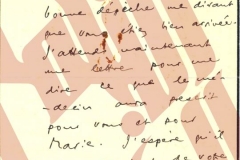 bonne dépêche me disant
que vous étiez bien arrivée.
J'attends maintenant
une lettre pour me
dire ce que le mé-
decin aura prescrit
pour vous et pour
Marie. J'espère qu'il
de votre